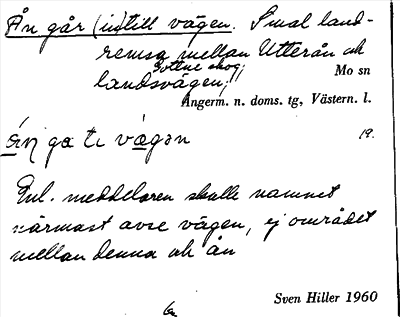 Ån går (in)till vägen. Smal land-
remsa mellan Utterån och
Gottne skog;
landsvägen;
Mo sn
Ångerm. n. doms. tg, Västern. l.
ga ti vægən
19.
Enl. meddelaren skulle namnet
närmast avse vägen, ej området
mellan denna och ån
Sven Hiller 1960